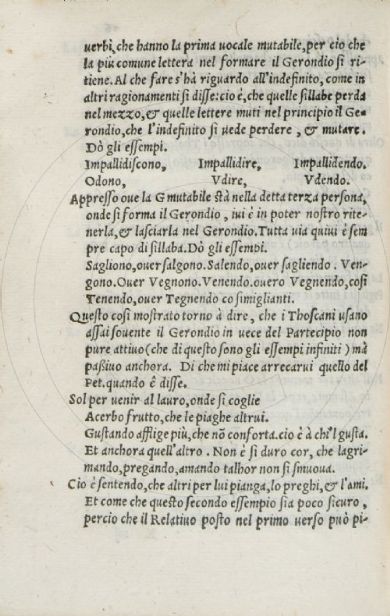 uerbi, che hanno la prima uocale mutabile, per cio che
la più comune lettera nel formare il Gerondio si ri-
tiene. Al che fare s'hà riguardo all'indefinito, come in
altri ragionamenti si disse: cio è, che quelle sillabe perda
nel mezzo, & quelle lettere muti nel principio il Ge-
rondio, che l'indefinito si uede perdere, & mutare.
Dò gli essempi.
Impallidiscono, Impallidire, Impallidendo.
Odono, Vdire, Vdendo.
Appresso oue la G mutabile stà nella detta terza persona,
onde si forma il Gerondio, iui è in poter nostro rite-
nerla, & lasciarla nel Gerondio. Tutta uia quiui è sem
pre capo di sillaba. Dò gli essembi.
Sagliono, ouer salgono. Salendo, ouer sagliendo. Ven-
gono. Ouer Vegnono. Venendo. ouero Vegnendo, così
Tenendo, ouer Tegnendo co simiglianti.
Questo così mostrato torno à dire, che i Thoscani usano
assai souente il Gerondio in uece del Partecipio non
pure attiuo (che di questo sono gli essempi infiniti) mà
paßiuo anchora. Di che mi piace arrecarui quello del
Pet. quando è disse.
Sol per uenir al lauro, onde si coglie
Acerbo frutto, che le piaghe altrui.
Gustando afflige più, che nō conforta. cio è à chi'l gusta.
Et anchora quell'altro. Non è si duro cor, che lagri-
mando, pregando, amando talhor non si smuoua.
Cio è sentendo, che altri per lui pianga, lo preghi, & l'ami.
Et come che questo secondo essempio sia poco sicuro,
percio che il Relatiuo posto nel primo uerso può pi-